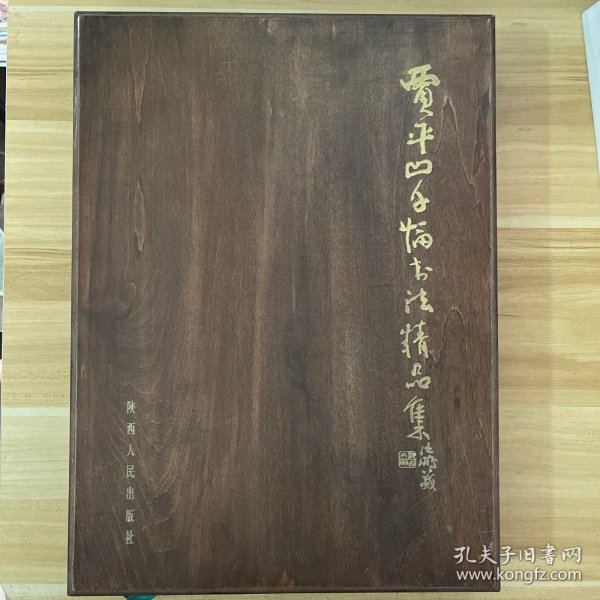 贾平凹手悀书法精品集
陕西人民出版社
孔夫子旧书网
www.kongfz.com